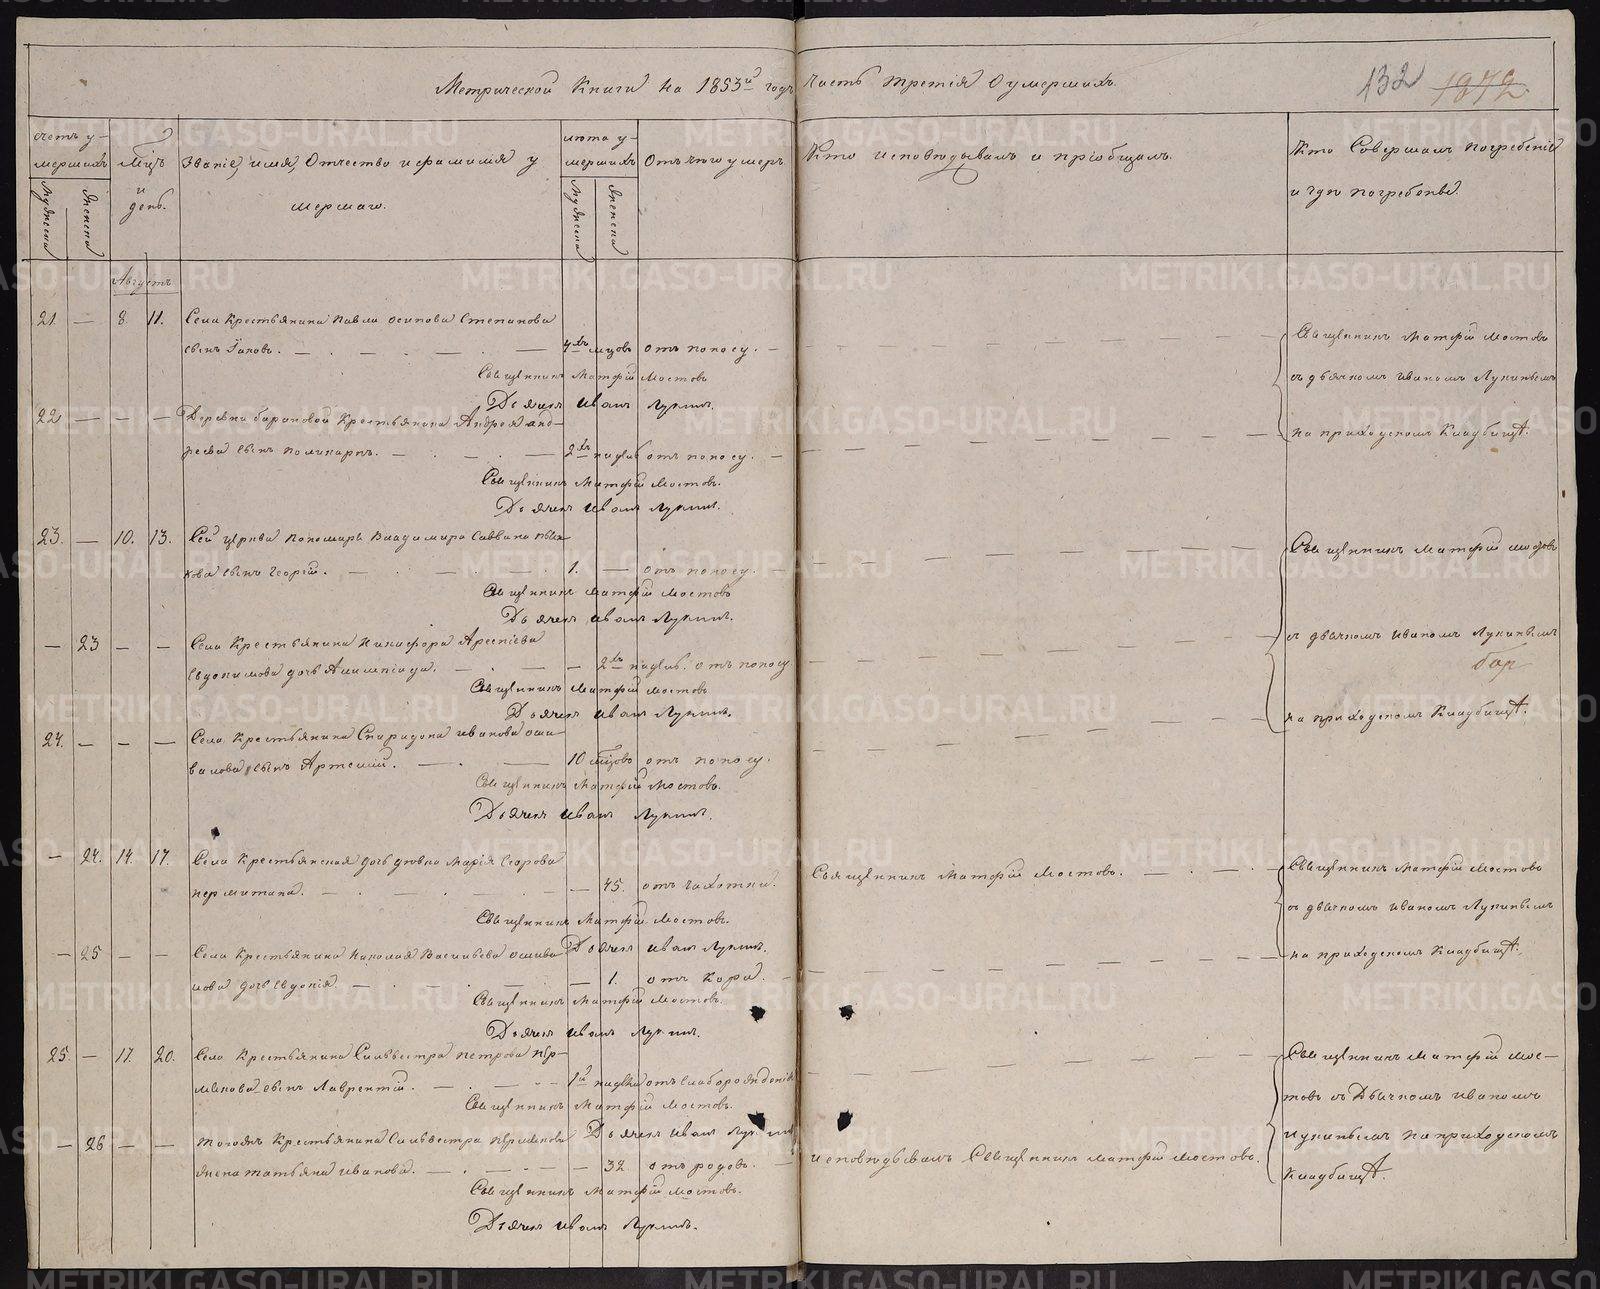 Метрической Книги на 1853й годъ Часть третія О умершихъ.
132
1872
Счетъ умершихъ
Мужеска
Женска
Мцъ и день.
Званіе, имя, Отчество и фамилія умершаго.
лѣта умершихъ
Мужеска
Женска
Отъ чего умеръ
Кто исповѣдывалъ и пріобщалъ.
Кто Совершалъ погребеніе
и гдѣ погребены.
Августъ
21 — 8. 11. Села Крестьянина Павла Осипова Степанова
сынъ Іаковъ. 4хъ мцовъ отъ поносу.
Священникъ Матфій Мостовъ
Дьячекъ Иванъ Лукинъ.
Священникъ Матфій Мостовъ
съ дьячкомъ Иваномъ Лукинымъ
на приходскомъ Кладбищѣ.
22 — — — Деревни Барановой Крестьянина Андрея Анд-
реева сынъ Поликарпъ. 2хъ недѣль отъ поносу.
Священникъ Матфій Мостовъ.
Дьячекъ Иванъ Лукинъ.
23. — 10. 13. Сей церкви Пономаря Владимира Саввина
сынъ Георгій. 1. отъ поносу.
Священникъ Матфій Мостовъ
Дьячекъ Иванъ Лукинъ.
Священникъ Матфій Мостовъ
съ дьячкомъ Иваномъ Лукинымъ
на приходскомъ Кладбищѣ.
— 23 — — Села Крестьянина Никифора Арсеніева
Евдокимова дочь Алимпіада. 2хъ недѣль. отъ поносу
Священникъ Матфій Мостовъ
Дьячекъ Иванъ Лукинъ.
24. — — — Села Крестьянина Спиридона Иванова Оши-
валова сынъ Артемій. 10 мцовъ отъ поносу.
Священникъ Матфій Мостовъ.
Дьячекъ Иванъ Лукинъ.
— 24. 14. 17. Села Крестьянская дочь дѣвка Марія Егорова
Пермитина. 45. отъ чахотки.
Священникъ Матфій Мостовъ.
Дьячекъ Иванъ Лукинъ.
Священникъ Матфій Мостовъ.
Священникъ Матфій Мостовъ
съ дьячкомъ Иваномъ Лукинымъ
на приходскомъ Кладбищѣ.
— 25 — — Села Крестьянина Николая Васильева Ошива-
лова дочь Евдокія. 1. отъ Кори.
Священникъ Матфій Мостовъ.
Дьячекъ Иванъ Лукинъ.
25. — 17. 20. Села Крестьянина Сильвестра Петрова Пер-
мякова сынъ Лаврентій. 1й недѣли отъ слаборожденія
Священникъ Матфій Мостовъ.
Дьячекъ Иванъ Лукинъ
Священникъ Матфій Мос-
товъ съ Дьячкомъ Иваномъ
Лукинымъ на приходскомъ
Кладбищѣ.
— 26 — — Тогожъ Крестьянина Сильвестра Пермякова
жена Татьяна Иванова. 32 отъ родовъ.
исповѣдывалъ Священникъ Матфій Мостовъ.
Священникъ Матфій Мостовъ.
Дьячекъ Иванъ Лукинъ.
METRIKI.GASO-URAL.RU